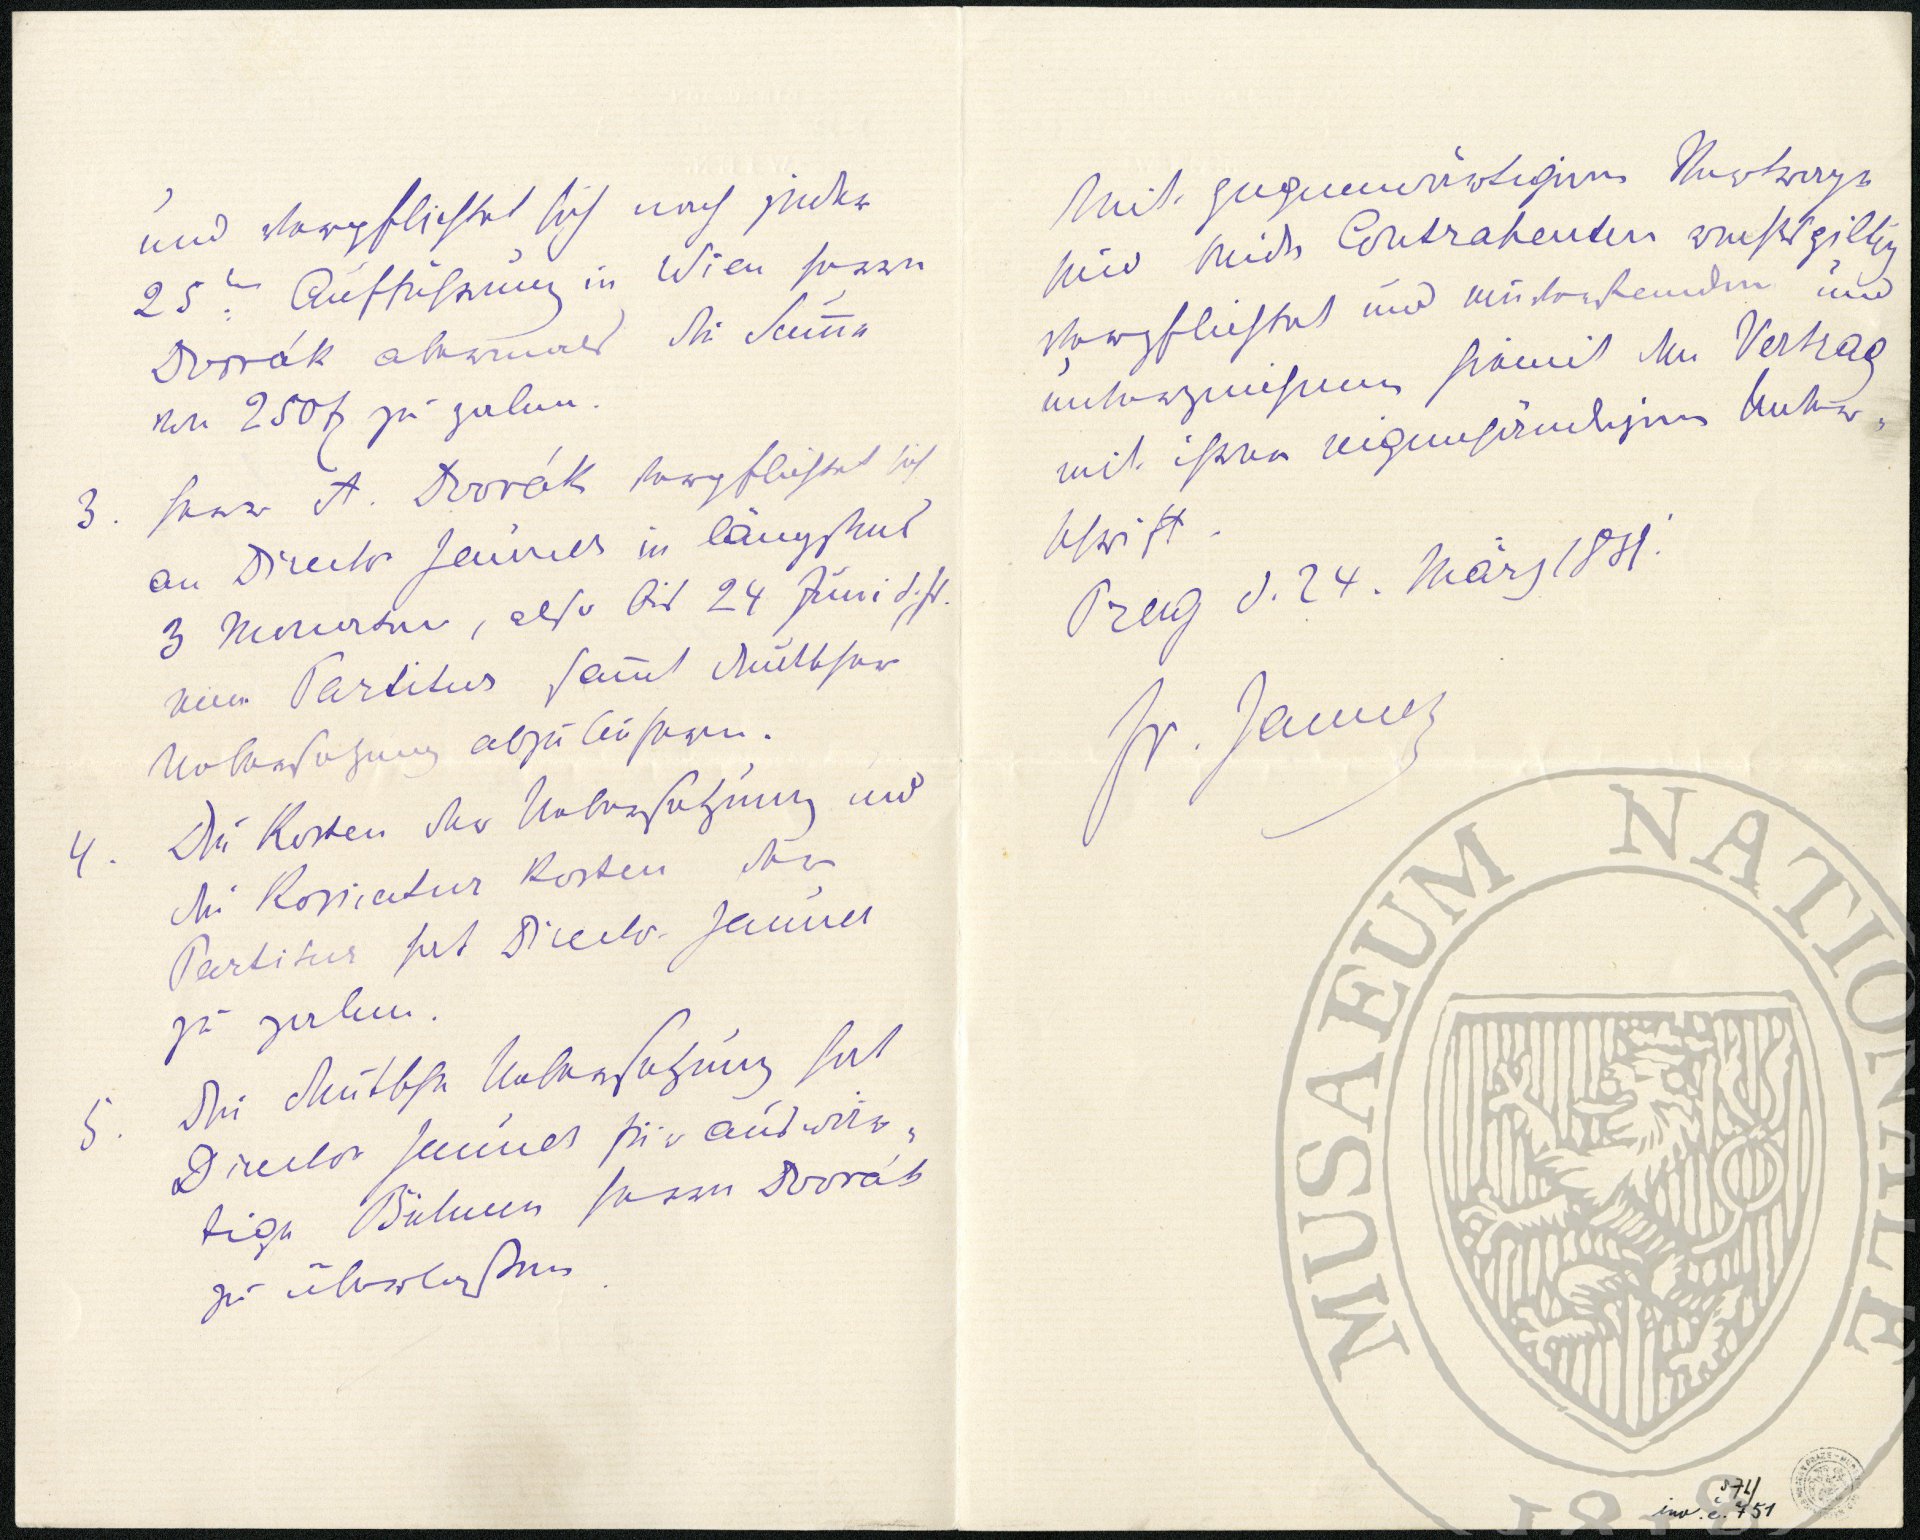 und verpflichtet sich nach jeder
25ten Aufführung in Wien Herrn
Dvořák abermals die Summe
von 250 f zu zalen.
3. Herr A. Dvořák verpflichtet sich
an Director Jauner in längstens
3 Monaten, also bis 24 Juni d. J.
eine Partitur sammt deutscher
Uebersetzung abzuliefern.
4. Die Kosten der Uebersetzung und
die Kopiatur Kosten der
Partitur hat Director Jauner
zu zalen.
5. Die deutsche Uebersetzung hat
Director Jauner für auswär-
tige Bühnen Herrn Dvořák
zu überlassen.
Mit gegenwärtigem Vertrage
sind beide Contrahenten rechtsgiltig
verpflichtet und einverstanden und
unterzeichnen hiemit den Vertrag
mit ihrer eigenhändigen Unter-
schrift.
Prag d. 24. März 1881.
Fr. Jauner
MUSAEUM NATIONALE
1818
574/
inv. č. 751